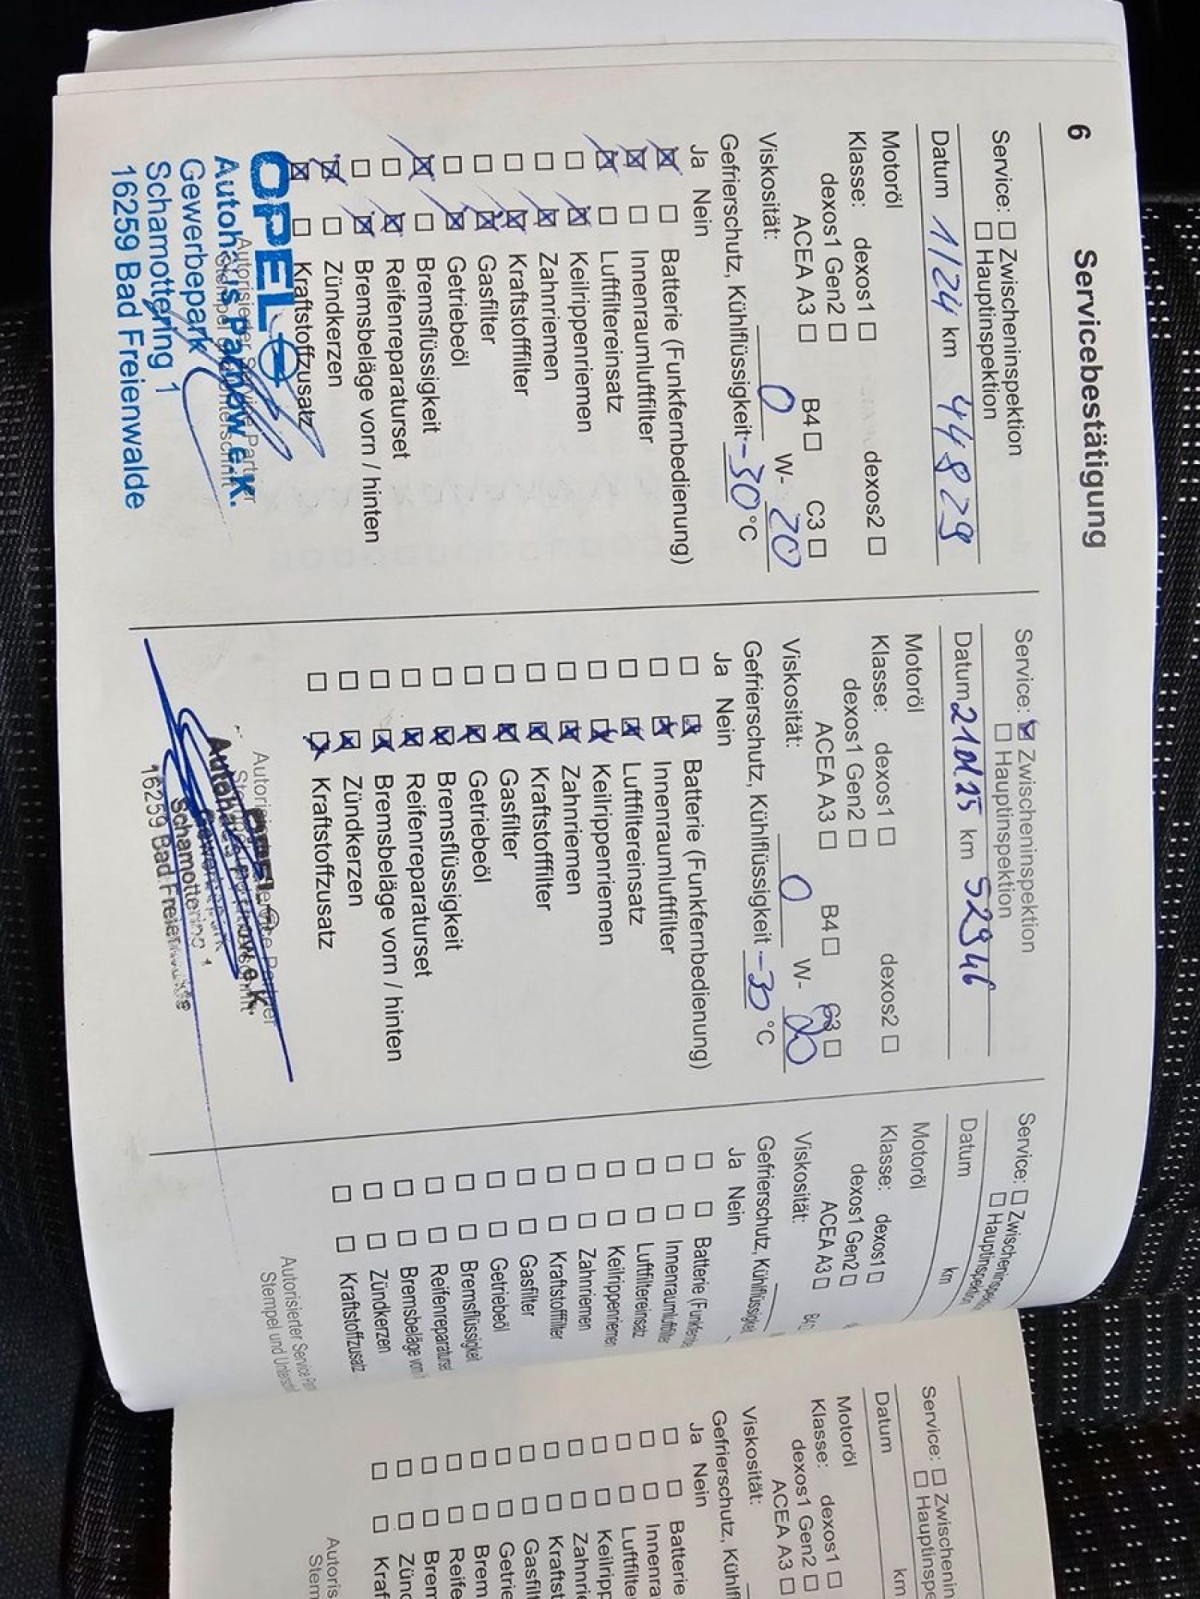 6 Servicebestätigung
Service: ☐ Zwischeninspektion
☐ Hauptinspektion
Datum 1/24 km 44829
Motoröl
Klasse: dexos1 ☐ dexos2 ☐
dexos1 Gen2 ☐
ACEA A3 ☐ B4 ☐ C3 ☐
Viskosität: 0 W- 20
Gefrierschutz, Kühlflüssigkeit -30 °C
Ja Nein
☒ ☐ Batterie (Funkfernbedienung)
☒ ☐ Innenraumluftfilter
☒ ☐ Luftfiltereinsatz
☐ ☒ Keilrippenriemen
☐ ☒ Zahnriemen
☐ ☒ Kraftstofffilter
☐ ☒ Gasfilter
☐ ☒ Getriebeöl
☒ ☐ Bremsflüssigkeit
☐ ☒ Reifenreparaturset
☐ ☒ Bremsbeläge vorn / hinten
☒ ☐ Zündkerzen
☒ ☐ Kraftstoffzusatz
Autorisierter Service Partner
OPEL
Autohaus Pachow e.K.
Gewerbepark
Schamottering 1
16259 Bad Freienwalde
Service: ☒ Zwischeninspektion
☐ Hauptinspektion
Datum 21.01.25 km 52946
Motoröl
Klasse: dexos1 ☐ dexos2 ☐
dexos1 Gen2 ☐
ACEA A3 ☐ B4 ☐ C3 ☐
Viskosität: 0 W- 20
Gefrierschutz, Kühlflüssigkeit -30 °C
Ja Nein
☐ ☒ Batterie (Funkfernbedienung)
☐ ☒ Innenraumluftfilter
☐ ☒ Luftfiltereinsatz
☐ ☒ Keilrippenriemen
☐ ☒ Zahnriemen
☐ ☒ Kraftstofffilter
☐ ☒ Gasfilter
☐ ☒ Getriebeöl
☐ ☒ Bremsflüssigkeit
☐ ☒ Reifenreparaturset
☐ ☒ Bremsbeläge vorn / hinten
☐ ☒ Zündkerzen
☐ ☒ Kraftstoffzusatz
Autorisierter Service Partner
Schamottering 1
16259 Bad Freienwalde
Service: ☐ Zwischeninspektion
☐ Hauptinspektion
Datum km
Motoröl
Klasse: dexos1 ☐
dexos1 Gen2 ☐
ACEA A3 ☐ B4
Viskosität:
Gefrierschutz, Kühlflüssigkeit
Ja Nein
☐ ☐ Batterie (Funkfernbe
☐ ☐ Innenraumluftfilter
☐ ☐ Luftfiltereinsatz
☐ ☐ Keilrippenriemen
☐ ☐ Zahnriemen
☐ ☐ Kraftstofffilter
☐ ☐ Gasfilter
☐ ☐ Getriebeöl
☐ ☐ Bremsflüssigkeit
☐ ☐ Reifenreparaturset
☐ ☐ Bremsbeläge vorn
☐ ☐ Zündkerzen
☐ ☐ Kraftstoffzusatz
Autorisierter Service Part
Stempel und Unterschr
Service: ☐ Zwischenin
☐ Hauptinspe
Datum km
Motoröl
Klasse: dexos1 ☐
dexos1 Gen2 ☐
ACEA A3 ☐
Viskosität:
Gefrierschutz, Kühlfl
Ja Nein
☐ ☐ Batterie
☐ ☐ Innenra
☐ ☐ Luftfilte
☐ ☐ Keilripp
☐ ☐ Zahnrie
☐ ☐ Kraftst
☐ ☐ Gasfilt
☐ ☐ Getrie
☐ ☐ Brem
☐ ☐ Reife
☐ ☐ Brem
☐ ☐ Zünd
☐ ☐ Kraf
Autoris
Stem